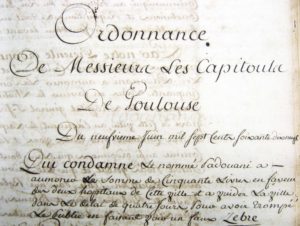 Ordonnance
De Messieurs Les Capitouls
De Toulouse
Du neufvieme Juin mil sept Cents soixante dix neuf
Qui condamne Le nommé Padouani a
aumoner La Somme de Cinquante Livres en faveur
des deux hopitaux de Cette ville et a vuider La ville
dans Le delai de quatre Jours Pour avoir trompé
Le Public en faisant voir un faux Zebre